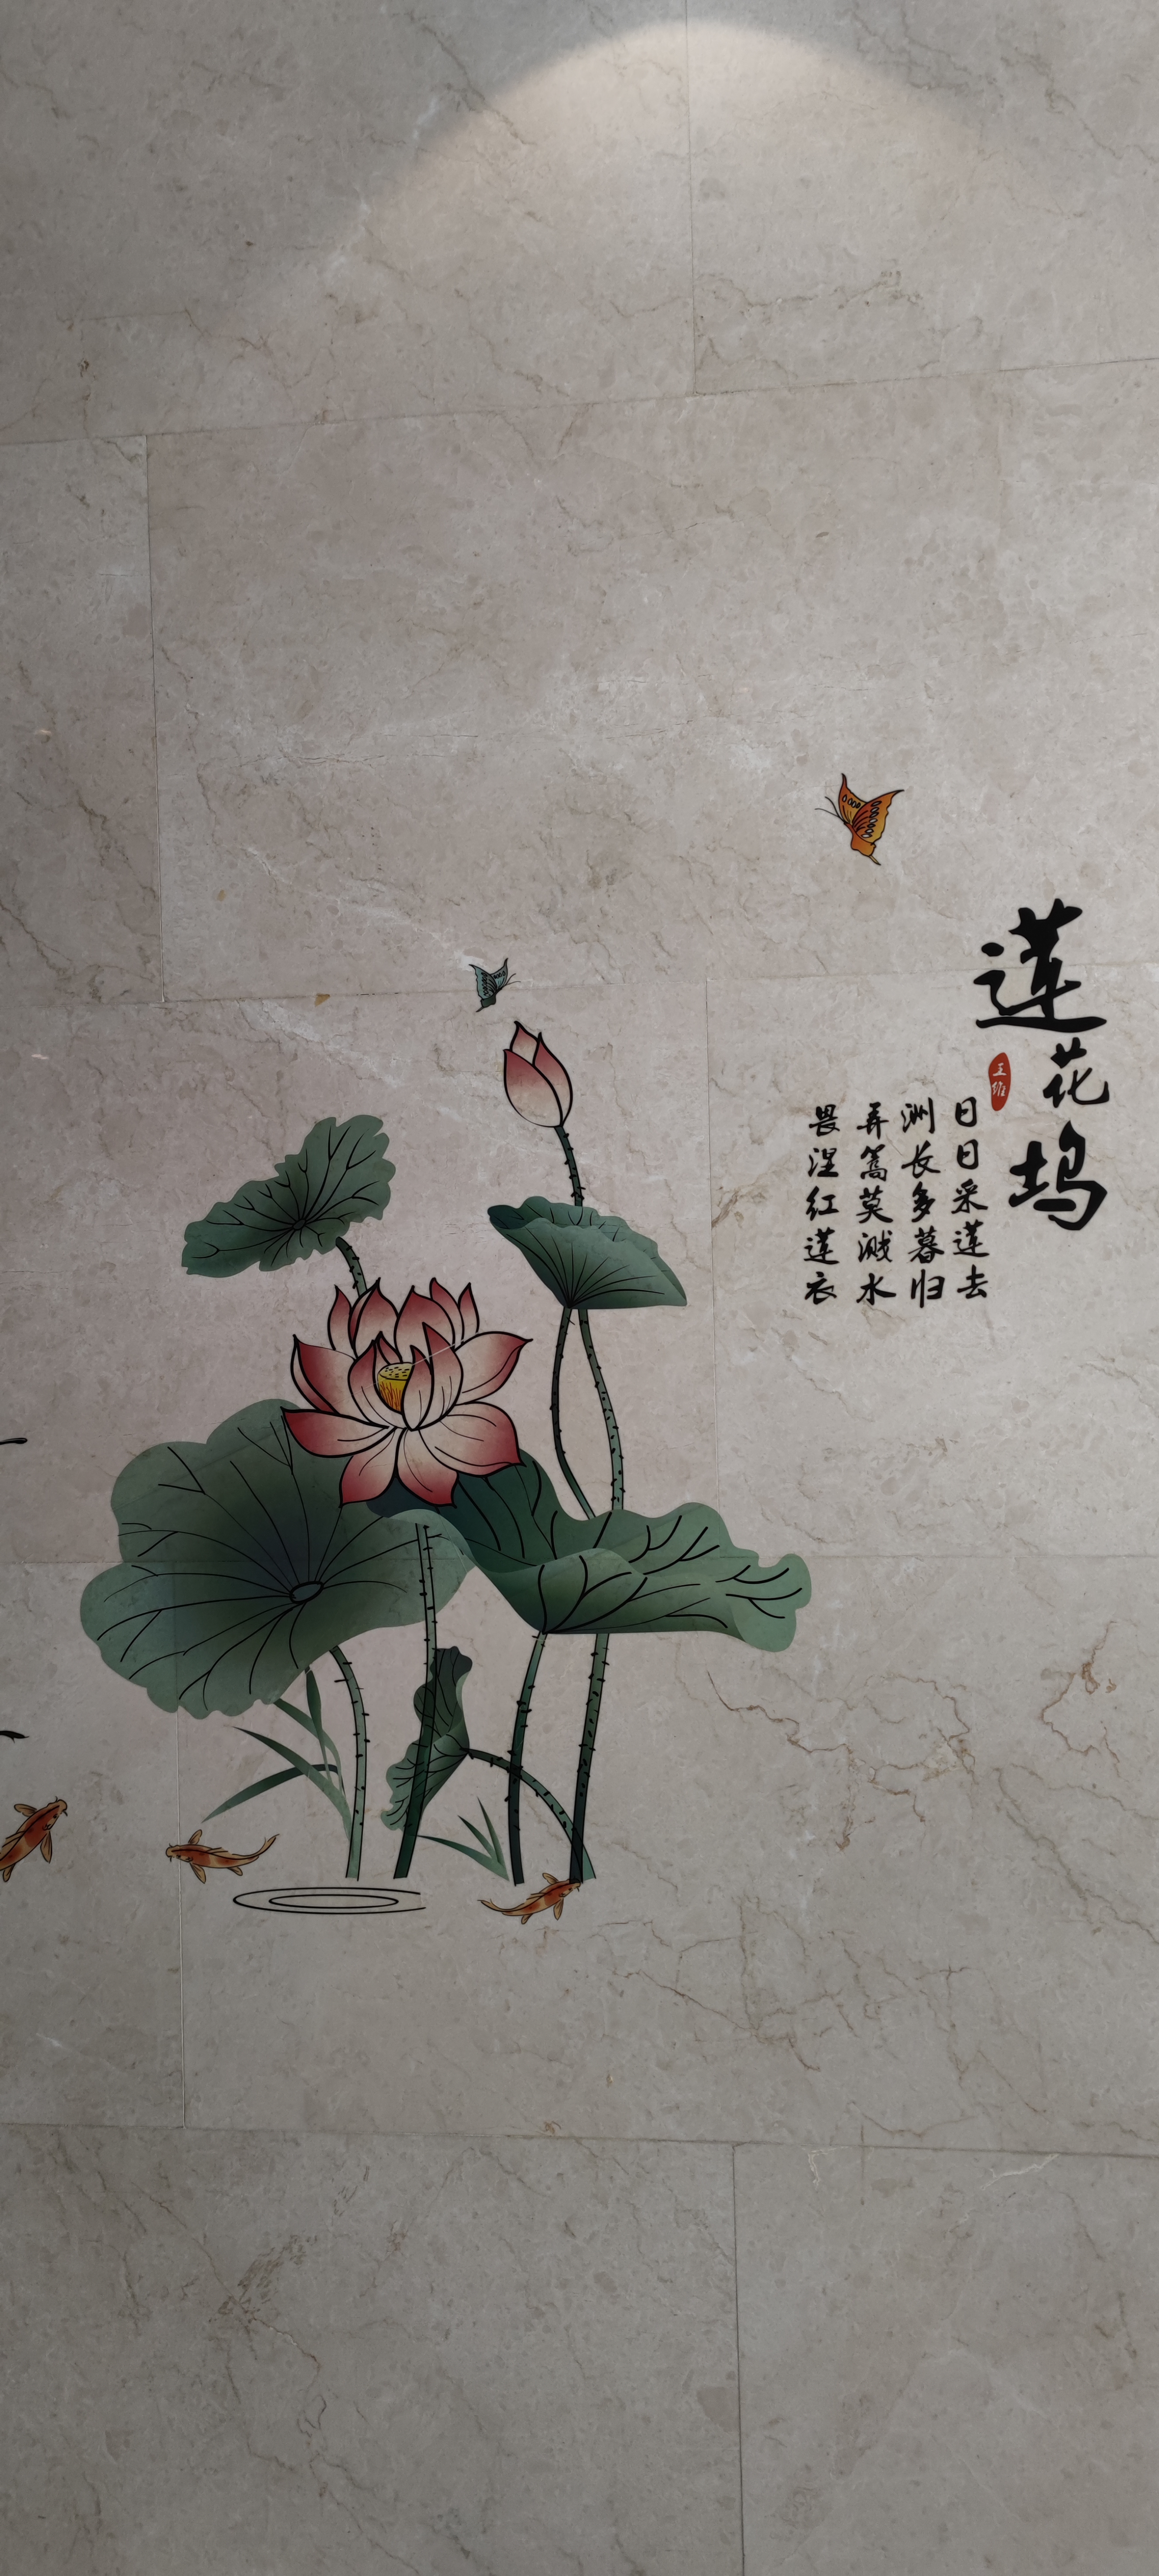 莲花坞
王维
日日采莲去
洲长多暮归
弄篙莫溅水
畏湿红莲衣